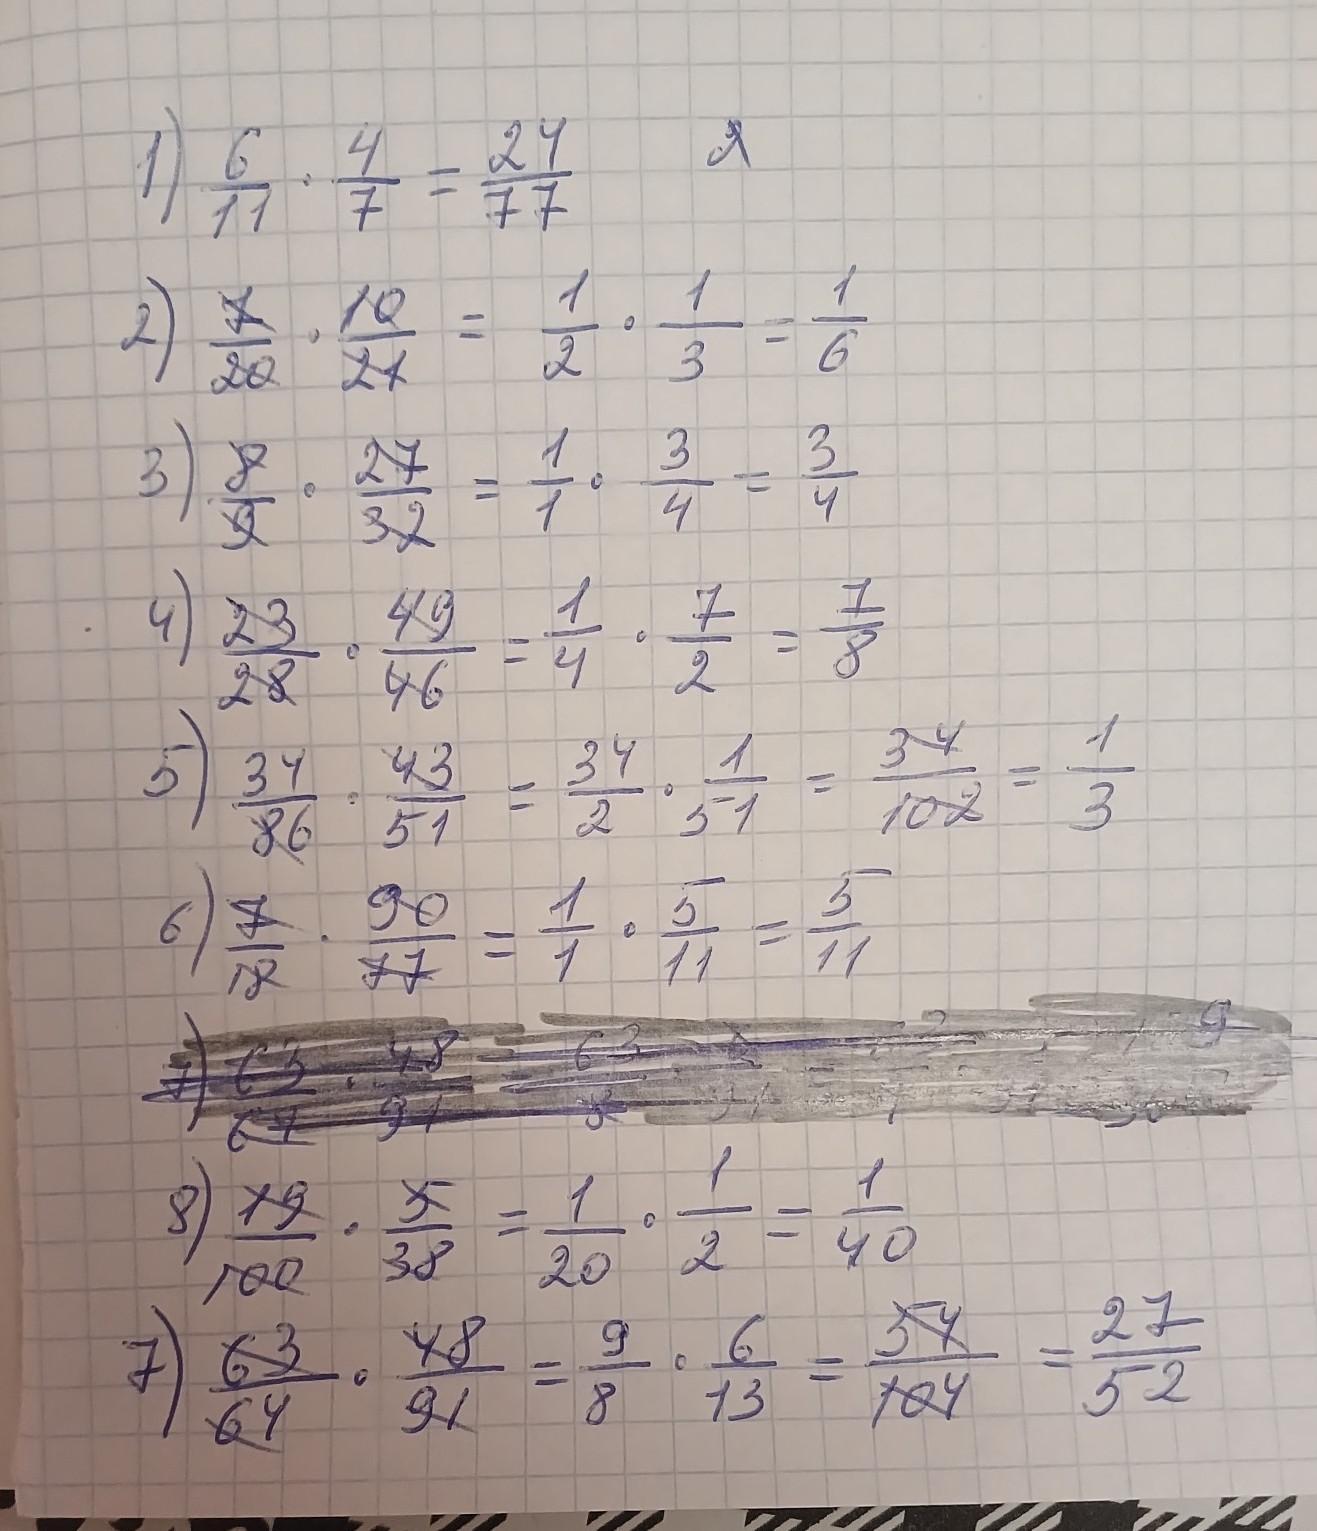 1) 6/11 · 4/7 = 24/77
2) 7/20 · 10/21 = 1/2 · 1/3 = 1/6
3) 8/9 · 27/32 = 1/1 · 3/4 = 3/4
4) 23/28 · 49/46 = 1/4 · 7/2 = 7/8
5) 34/86 · 43/51 = 34/2 · 1/51 = 34/102 = 1/3
6) 7/18 · 90/77 = 1/1 · 5/11 = 5/11
8) 19/100 · 5/38 = 1/20 · 1/2 = 1/40
7) 63/64 · 48/91 = 9/8 · 6/13 = 54/104 = 27/52